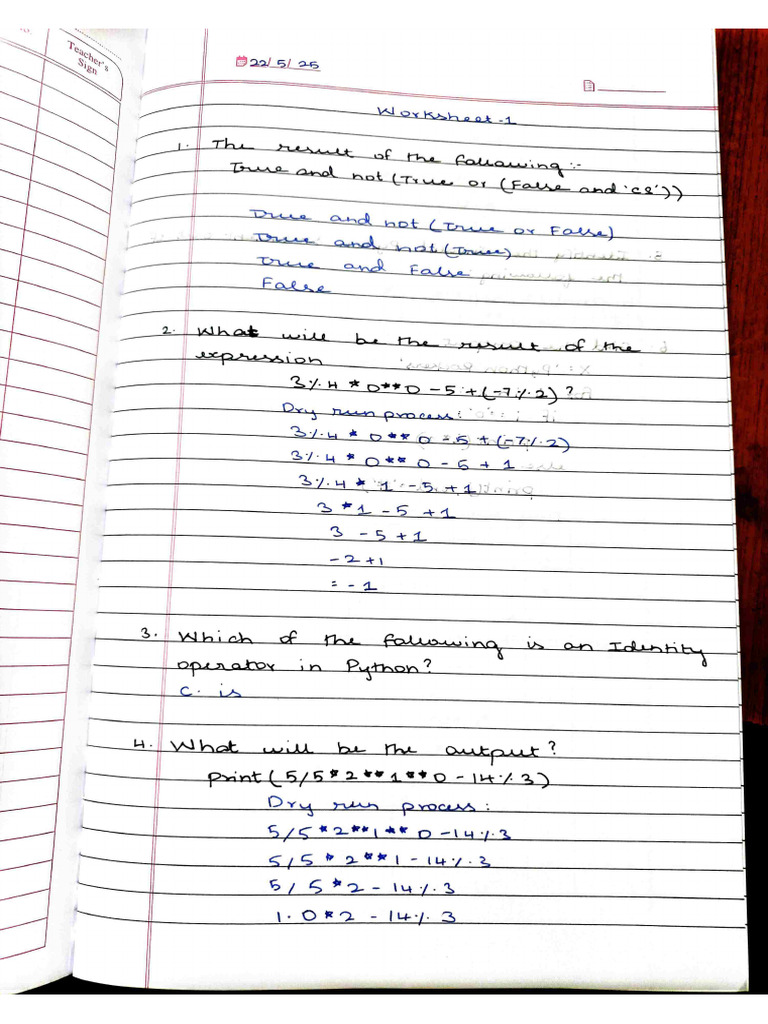 Teacher's
Sign
22/5/25
Worksheet-1
1. The result of the following:-
True and not (True or (False and 'cs'))
True and not (True or False)
True and not (True)
True and False
False
2. What will be the result of the
expression
3%4*0**0-5+(-7%2)?
Dry run process:
3%4*0**0-5+(-7%2)
3%4*0**0-5+1
3%4*1-5+1
3*1-5+1
3-5+1
-2+1
=-1
3. Which of the following is an Identity
operator in Python?
C. is
4. What will be the output?
print(5/5*2**1**0-14%3)
Dry run process:
5/5*2**1**0-14%3
5/5*2**1-14%3
5/5*2-14%3
1.0*2-14%3